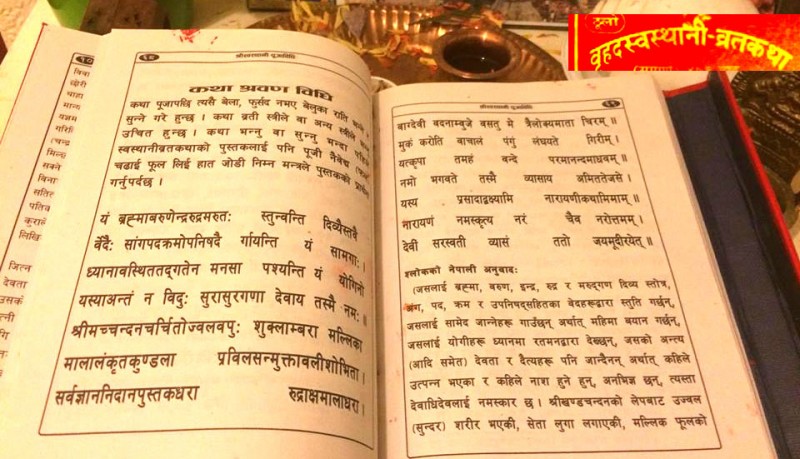 ठूलो
वृहदस्वस्थानी-व्रतकथा
१०
श्रीस्वस्थानी पूजाविधि
कथा श्रवण विधि
कथा पूजापछि त्यसै बेला, फुर्सद नभए बेलुका राति
सुन्ने गरे हुन्छ । कथा व्रती स्त्रीले वा अन्य स्त्रीले
उचित हुन्छ । कथा भन्नु वा सुन्नु भन्दा
स्वस्थानीव्रतकथाको पुस्तकलाई पनि पूजी नैवेद्य
चढाई फूल लिई हात जोडी निम्न मन्त्रले पुस्तकको
गर्नुपर्दछ ।
यं ब्रह्माबरुणेन्द्ररुद्रमरुतः स्तुन्वन्ति दिव्यैस्तवै
र्वेदैः सांगपदक्रमोपनिषदै र्गायन्ति यं सामगाः ।
ध्यानावस्थिततद्गतेन मनसा पश्यन्ति यं योगिनो
यस्याअन्तं न विदुः सुरासुरगणा देवाय तस्मै नमः ॥
श्रीमच्चन्दनचर्चितोज्वलवपुः शुक्लाम्बरा मल्लिका
मालालंकृतकुण्डला प्रविलसन्मुक्तावलीशोभिता ।
सर्वज्ञाननिदानपुस्तकधरा रुद्राक्षमालाधरा ।
श्रीस्वस्थानी पूजाविधि
११
वाग्देवी वदनाम्बुजे वसतु मे त्रैलोक्यमाता चिरम् ॥
मुकं करोति वाचालं पंगुं लंघयते गिरीम् ।
यत्कृपा तमहं वन्दे परमानन्दमाधवम् ॥
नमो भगवते तस्मै व्यासाय अमिततेजसे ।
यस्य प्रसादाद्वक्ष्यामि नारायणीकथामिमाम् ॥
नारायणं नमस्कृत्य नरं चैव नरोत्तमम् ।
देवी सरस्वती व्यासं ततो जयमूदीरयेत् ॥
श्लोकको नेपाली अनुवादः
(जसलाई ब्रह्मा, वरुण, इन्द्र, रुद्र र मरुद्गण दिव्य स्तोत्र,
अंग, पद, क्रम र उपनिषद्सहितका वेदहरूद्वारा स्तुति गर्छन्,
जसलाई सामेद जान्नेहरू गाउँछन् अर्थात् महिमा बयान गर्छन्,
जसलाई योगीहरू ध्यानमा रतमनद्वारा देख्छन्, जसको अन्त्य
(आदि समेत) देवता र दैत्यहरू पनि जान्दैनन् अर्थात् कहिले
उत्पन्न भएका र कहिले नाश हुने हुन्, अनभिज्ञ छन्, त्यस्ता
देवाधिदेवलाई नमस्कार छ । श्रीखण्डचन्दनको लेपबाट उज्वल
(सुन्दर) शरीर भएकी, सेता लुगा लगाएकी, मल्लिक फूलको